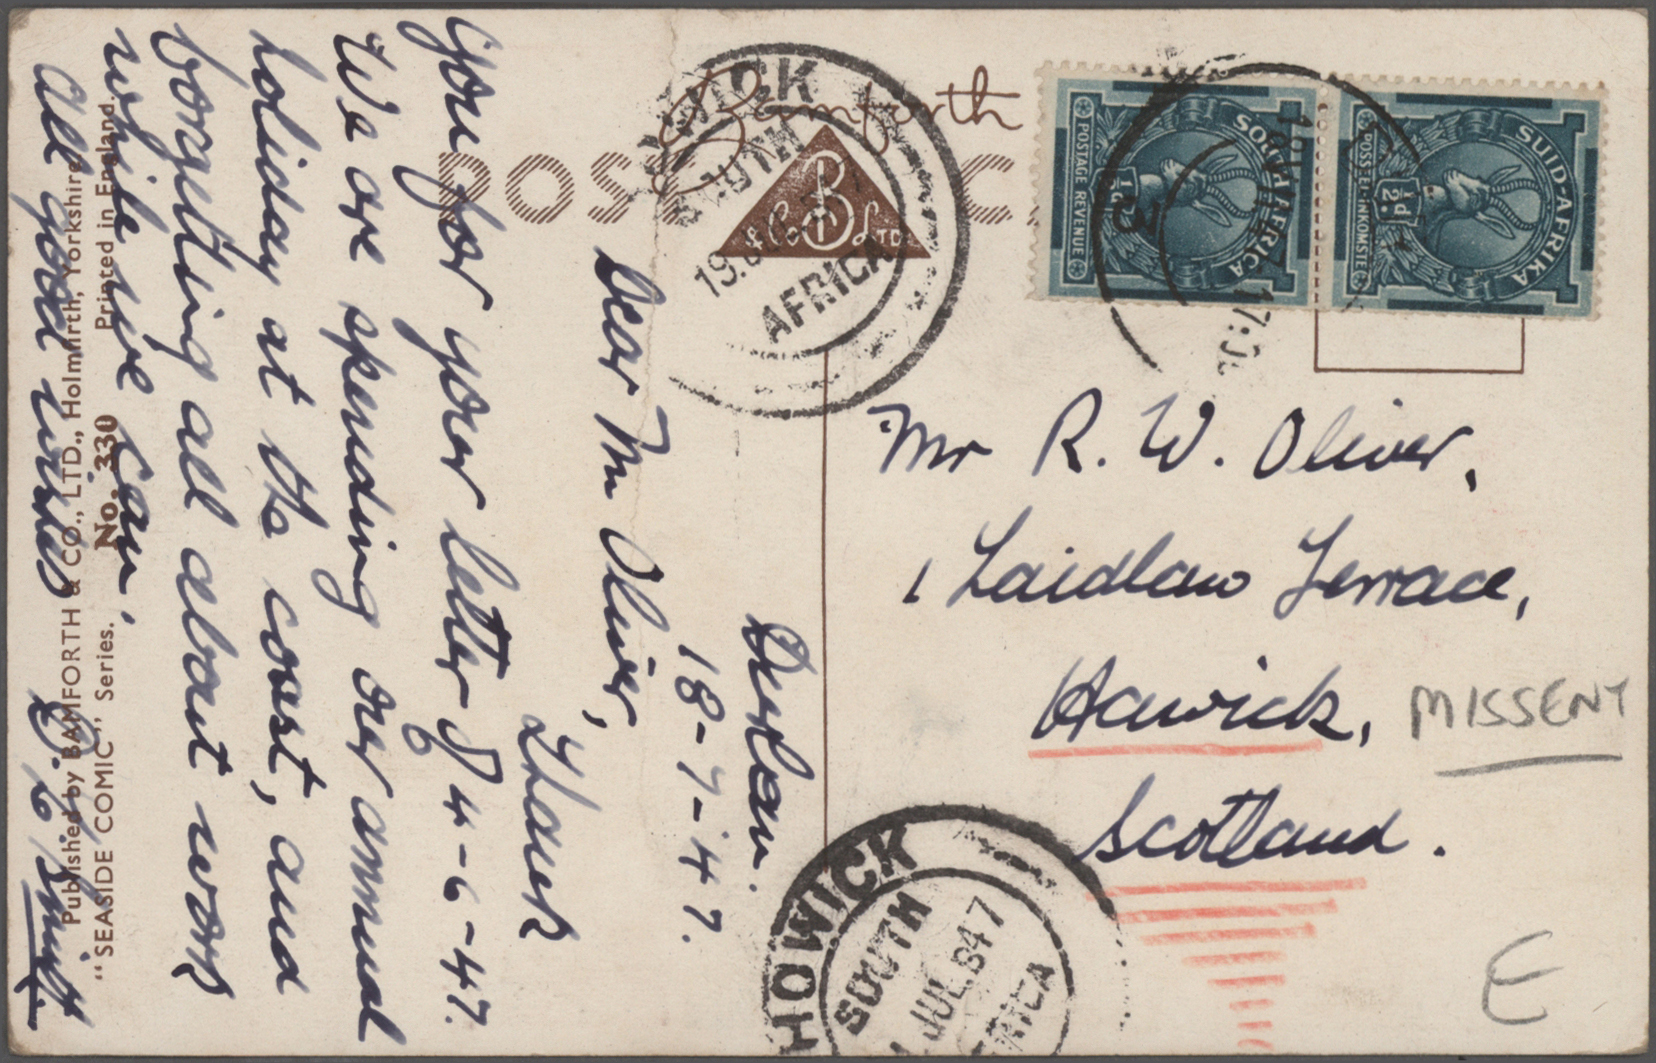 Bamforth
POST C
B
& Co LTD
Durban.
18-7-47.
Dear Mr Oliver,
Thank
you for your letter of 4-6-47.
We are spending our annual
holiday at the coast, and
forgetting all about work
while we can.
All good wishes
Published by BAMFORTH & CO., LTD., Holmfirth, Yorkshire
Printed in England
"SEASIDE COMIC" Series. No. 330
SOUTH AFRICA
POSTAGE REVENUE
½d.
SUID-AFRIKA
POSSEËL-INKOMSTE
½d.
WICK
SOUTH
AFRICA
Mr R. W. Oliver,
1 Laidlaw Terrace,
Hawick,
MISSENT
Scotland.
HOWICK
SOUTH
JUL 847
RICA
E